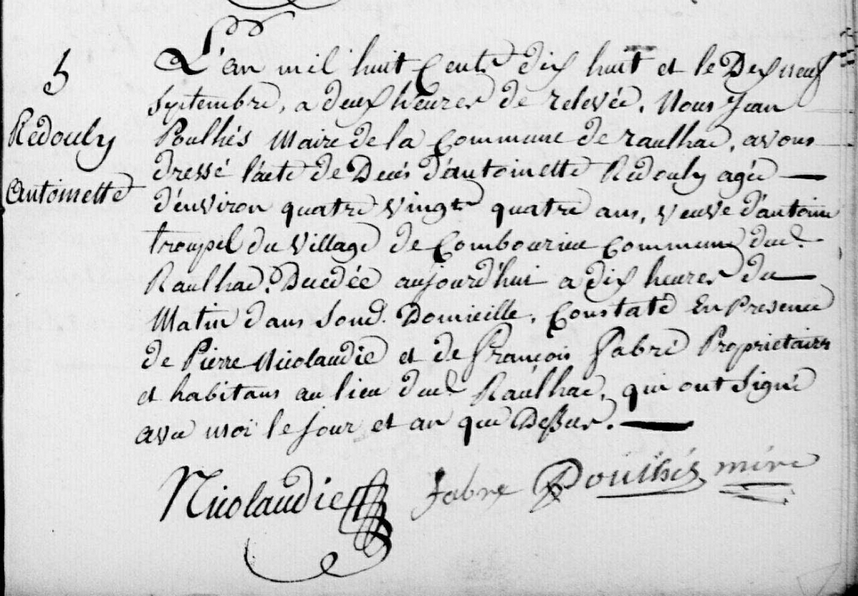 5
Redouly
Antoinette
L'an mil huit Cent dix huit et le Dixneuf
septembre, a deux heures de relevée. Nous Jean
Poulhés Maire de la Commune de raulhac, avons
dressé l'acte de Decés d'antoinette Redouly agée
d'environ quatre vingt quatre ans, veuve d'antoine
troupel du village de Combourieu Commune dud.
Raulhac. Decedée aujourd'hui a dix heures du
Matin dans sond. Domicille. Constaté En Presence
de Pierre Nicolaudie et de françois fabre Proprietaires
et habitans au lieu dud. Raulhac, qui ont signé
avec moi le jour et an que Dessus.
Nicolaudie fabre Poulhés mére